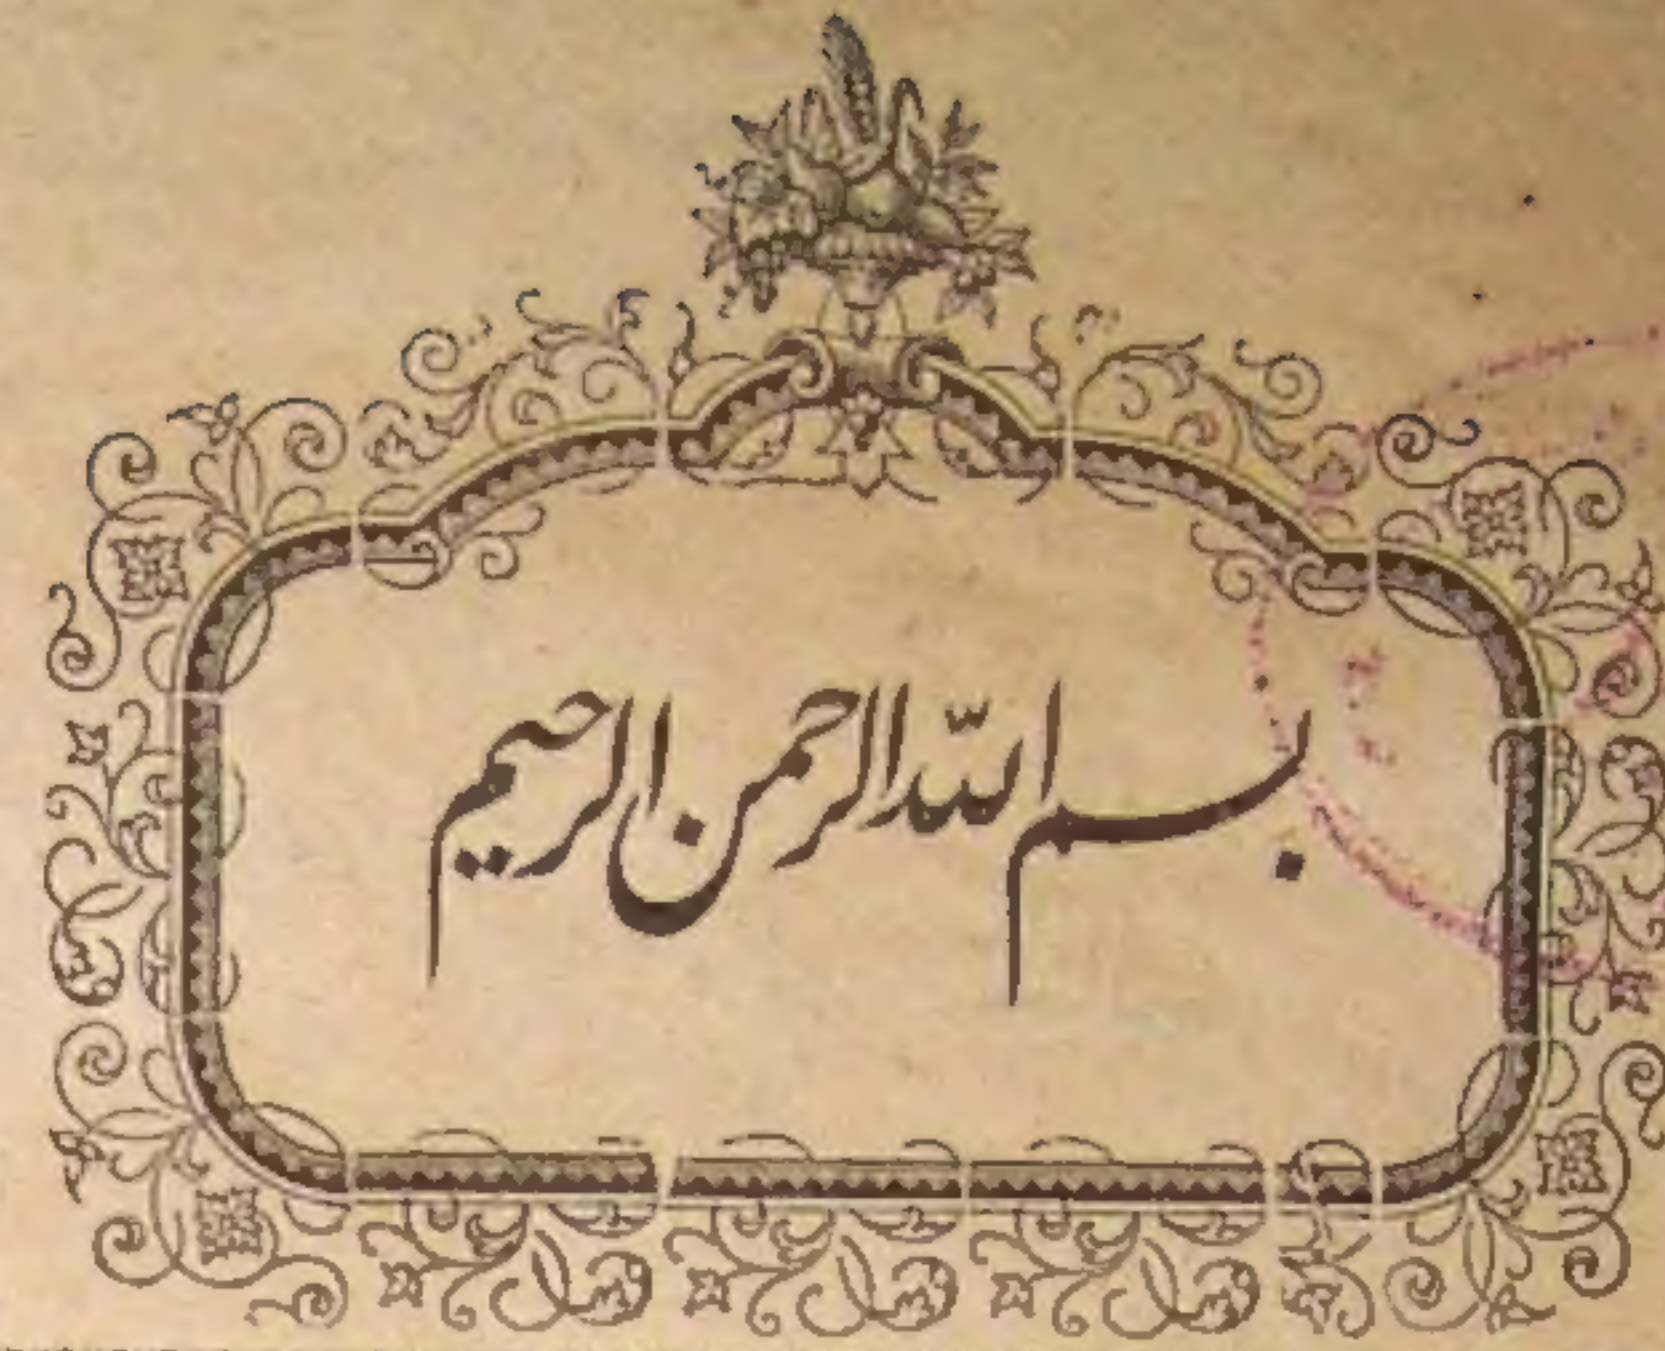 بسم اللّه الرحمن الرحیم